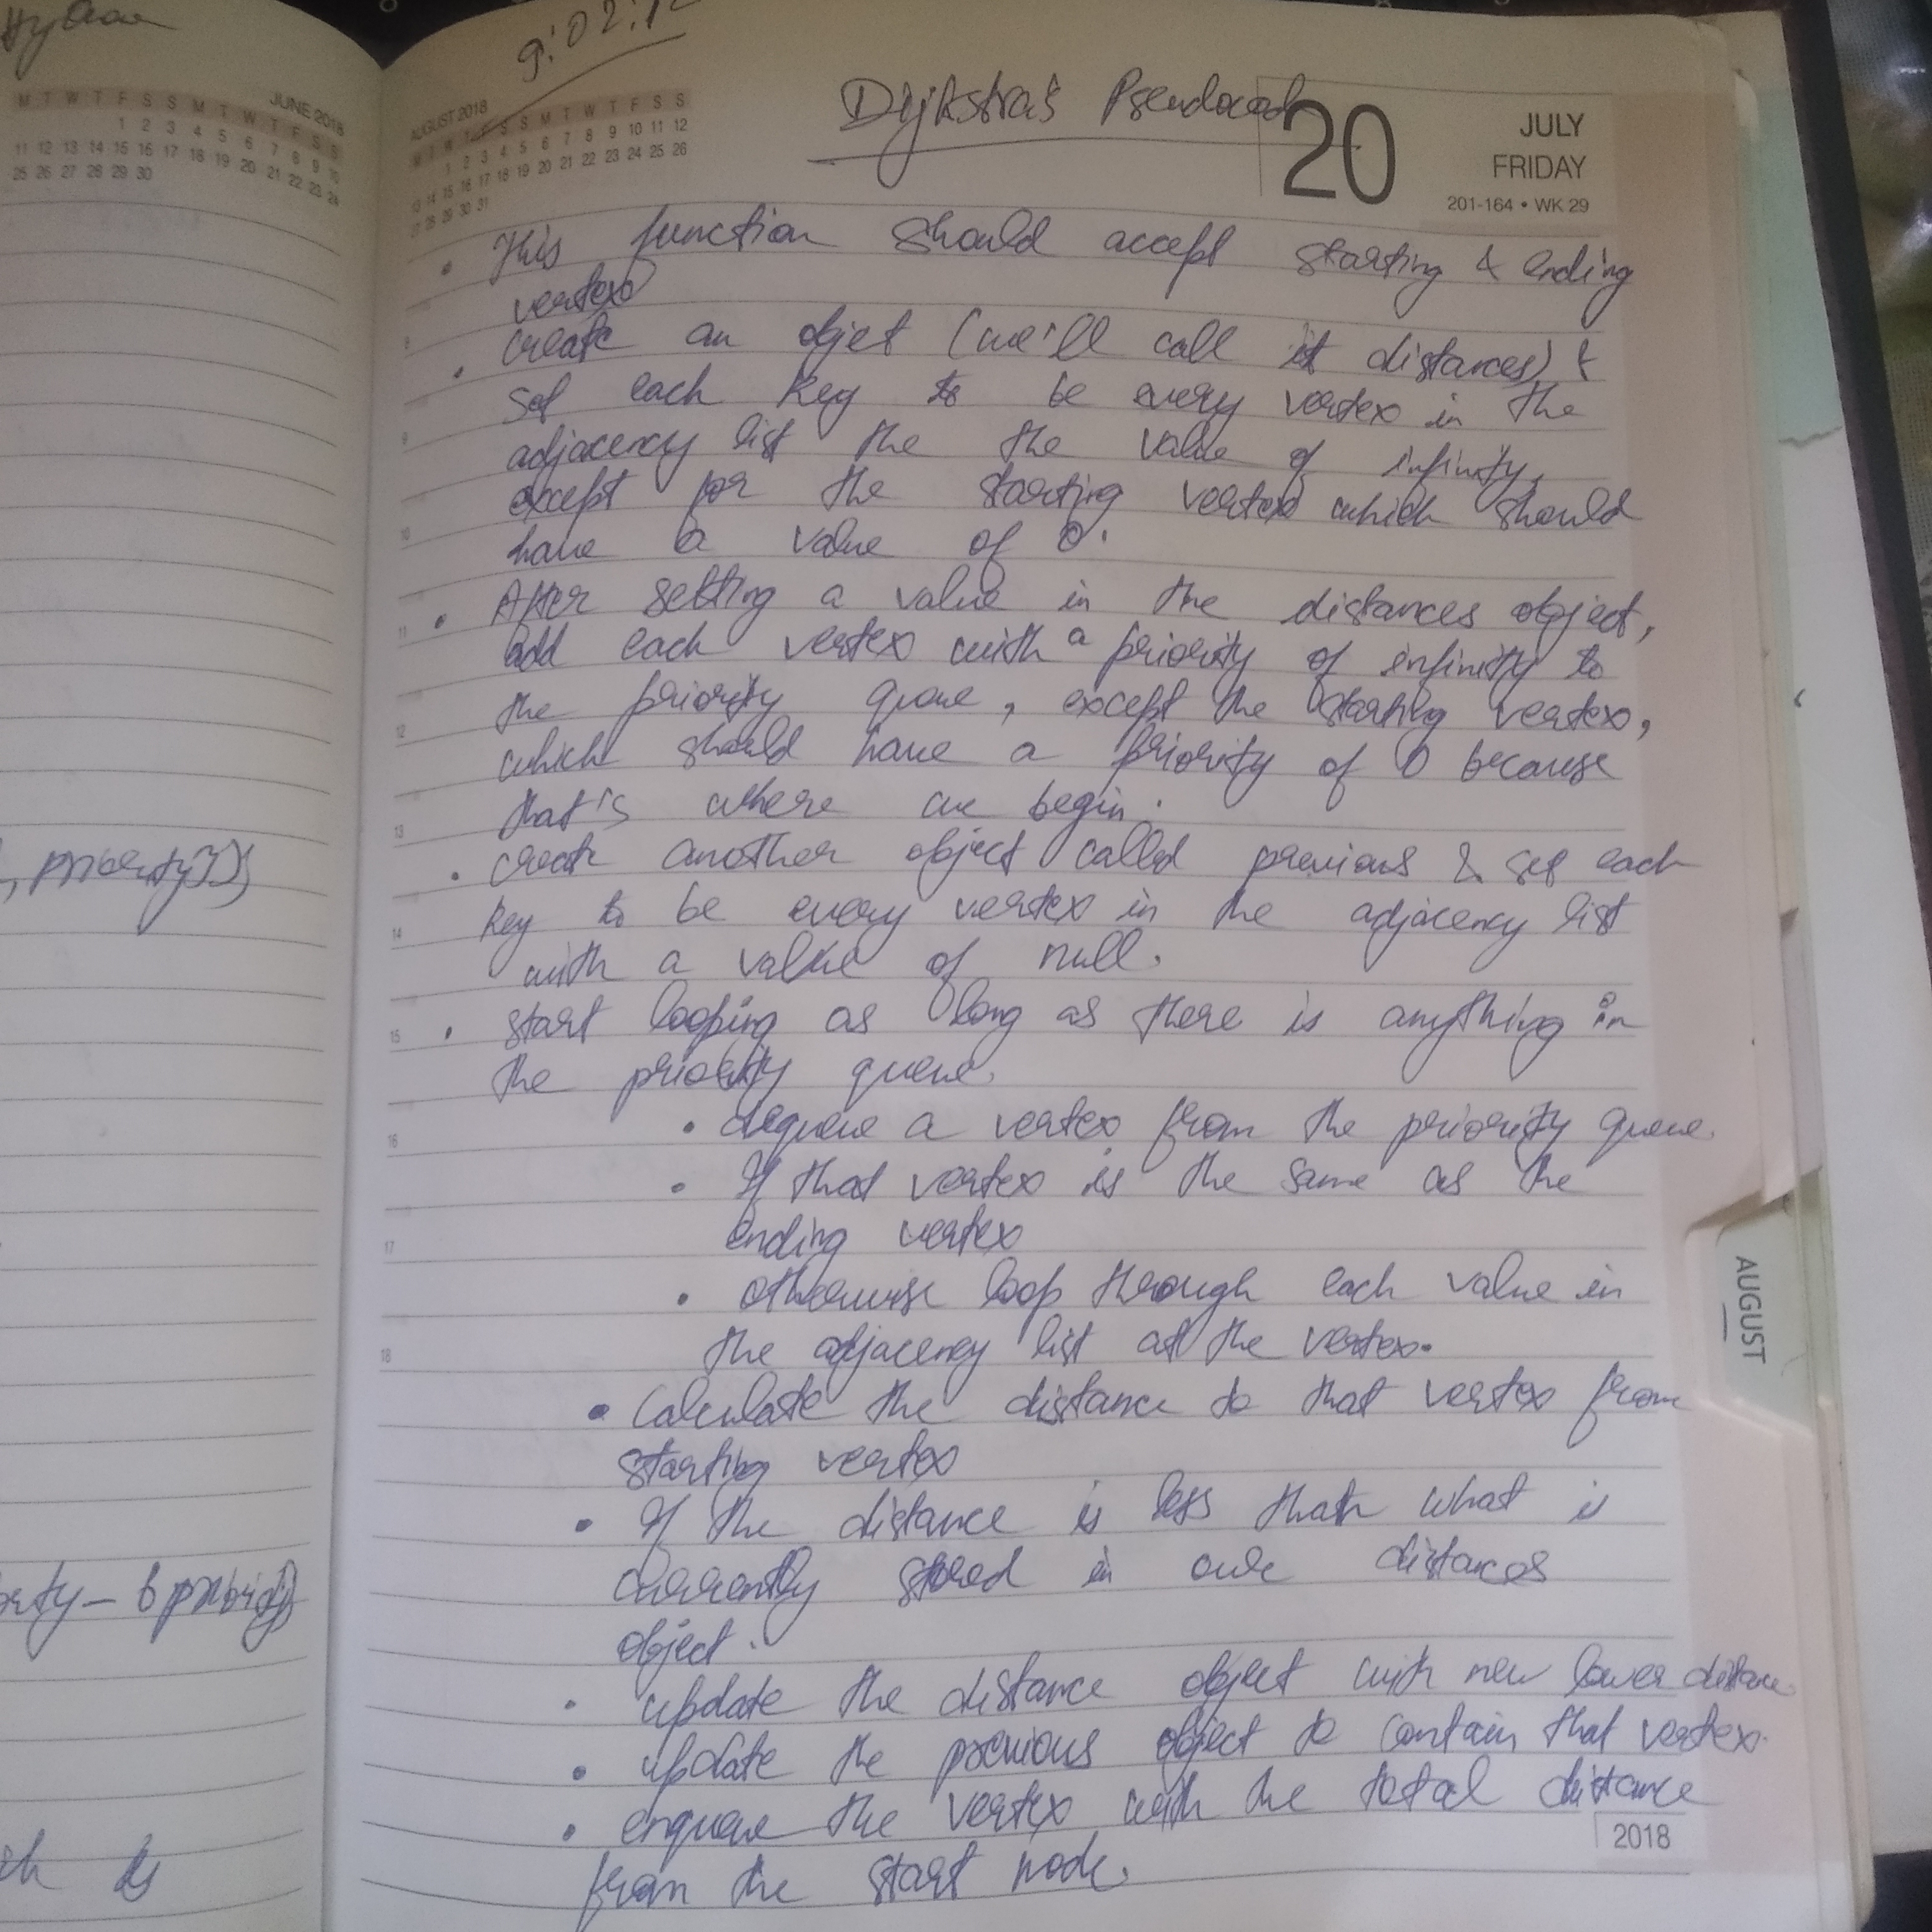 JUNE 2018
M T W T F S S M T W T F S S
1 2 3 4 5 6 7 8 9 10
11 12 13 14 15 16 17 18 19 20 21 22 23 24
25 26 27 28 29 30
, priority});
9:02:12
AUGUST 2018
M T W T F S S M T W T F S S
1 2 3 4 5 6 7 8 9 10 11 12
13 14 15 16 17 18 19 20 21 22 23 24 25 26
27 28 29 30 31
Dijkstra's Pseudocode
20
JULY
FRIDAY
201-164 • WK 29
• This function should accept starting & ending
vertex
• create an objet (we'll call it distances) &
set each key to be every vertex in the
adjacency list the the value of infinity,
except for the starting vertex which should
have a value of 0.
• After setting a value in the distances object,
add each vertex with a priority of infinity to
the priority queue, except the starting vertex,
which should have a priority of 0 because
that's where we begin.
• create another object called previous & set each
key to be every vertex in the adjacency list
with a value of null.
• start looping as long as there is anything in
the priority queue.
• dequeue a vertex from the priority queue.
• If that vertex is the same as the
ending vertex
• otherwise loop through each value in
the adjacency list at the vertex.
• Calculate the distance to that vertex from
starting vertex
• If the distance is less than what is
currently stored in our distances
object.
• update the distance object with new lower distance
• update the previous object to contain that vertex.
• enqueue the vertex with the total distance
from the start node.
8
9
10
11
12
13
14
15
16
17
18
AUGUST
2018